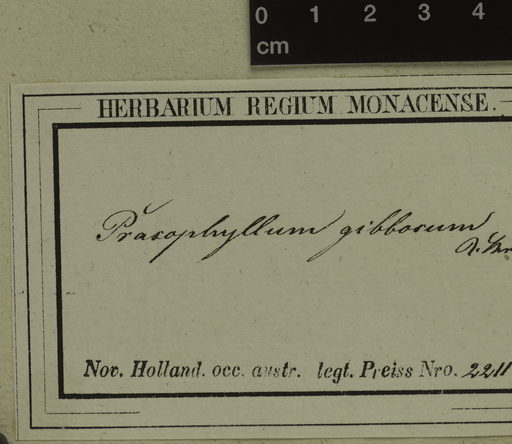 0 1 2 3 4
cm
HERBARIUM REGIUM MONACENSE.
Prasophyllum gibbosum
Nov. Holland. occ. austr. legt. Preiss Nro. 2211